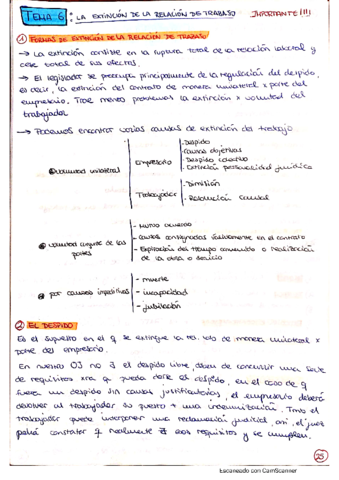 TEMA 6: LA EXTINCIÓN DE LA RELACIÓN DE TRABAJO IMPORTANTE!!!
① FORMAS DE EXTINCIÓN DE LA RELACIÓN DE TRABAJO
→ La extinción consiste en la ruptura total de la relación laboral y
cese total de sus efectos.
→ El legislador se preocupa principalmente de la regulación del despido,
es decir, la extinción del contrato de manera unilateral x parte del
empresario. Trae menos problemas la extinción x voluntad del
trabajador
→ Podemos encontrar varias causas de extinción de trabajo.
- Despido
- Causas objetivas
Empresario - Despido colectivo
- Extinción personalidad jurídica
voluntad unilateral
Trabajador - Dimisión
- Resolución causal
- Mutuo acuerdo
voluntad conjunta de las - Causas consignadas válidamente en el contrato
partes - Expiración del tiempo convenido o realización
de la obra o servicio
- muerte
por causas - incapacidad
- jubilación
② EL DESPIDO
Es el supuesto en el q se extingue la de manera unilateral x
parte del empresario.
En nuestro OJ no ∃ el despido libre, deben de concurrir una serie
de requisitos xra q pueda darse el despido, en el caso de q
fuera un despido sin causas justificatorias, el empresario deberá
devolver al trabajador su puesto + una indemnización. Tmb el
trabajador puede interponer una reclamación judicial, así, el juez
podrá constatar q realmente ∃ esos requisitos y se cumplen.
25
Escaneado con CamScanner